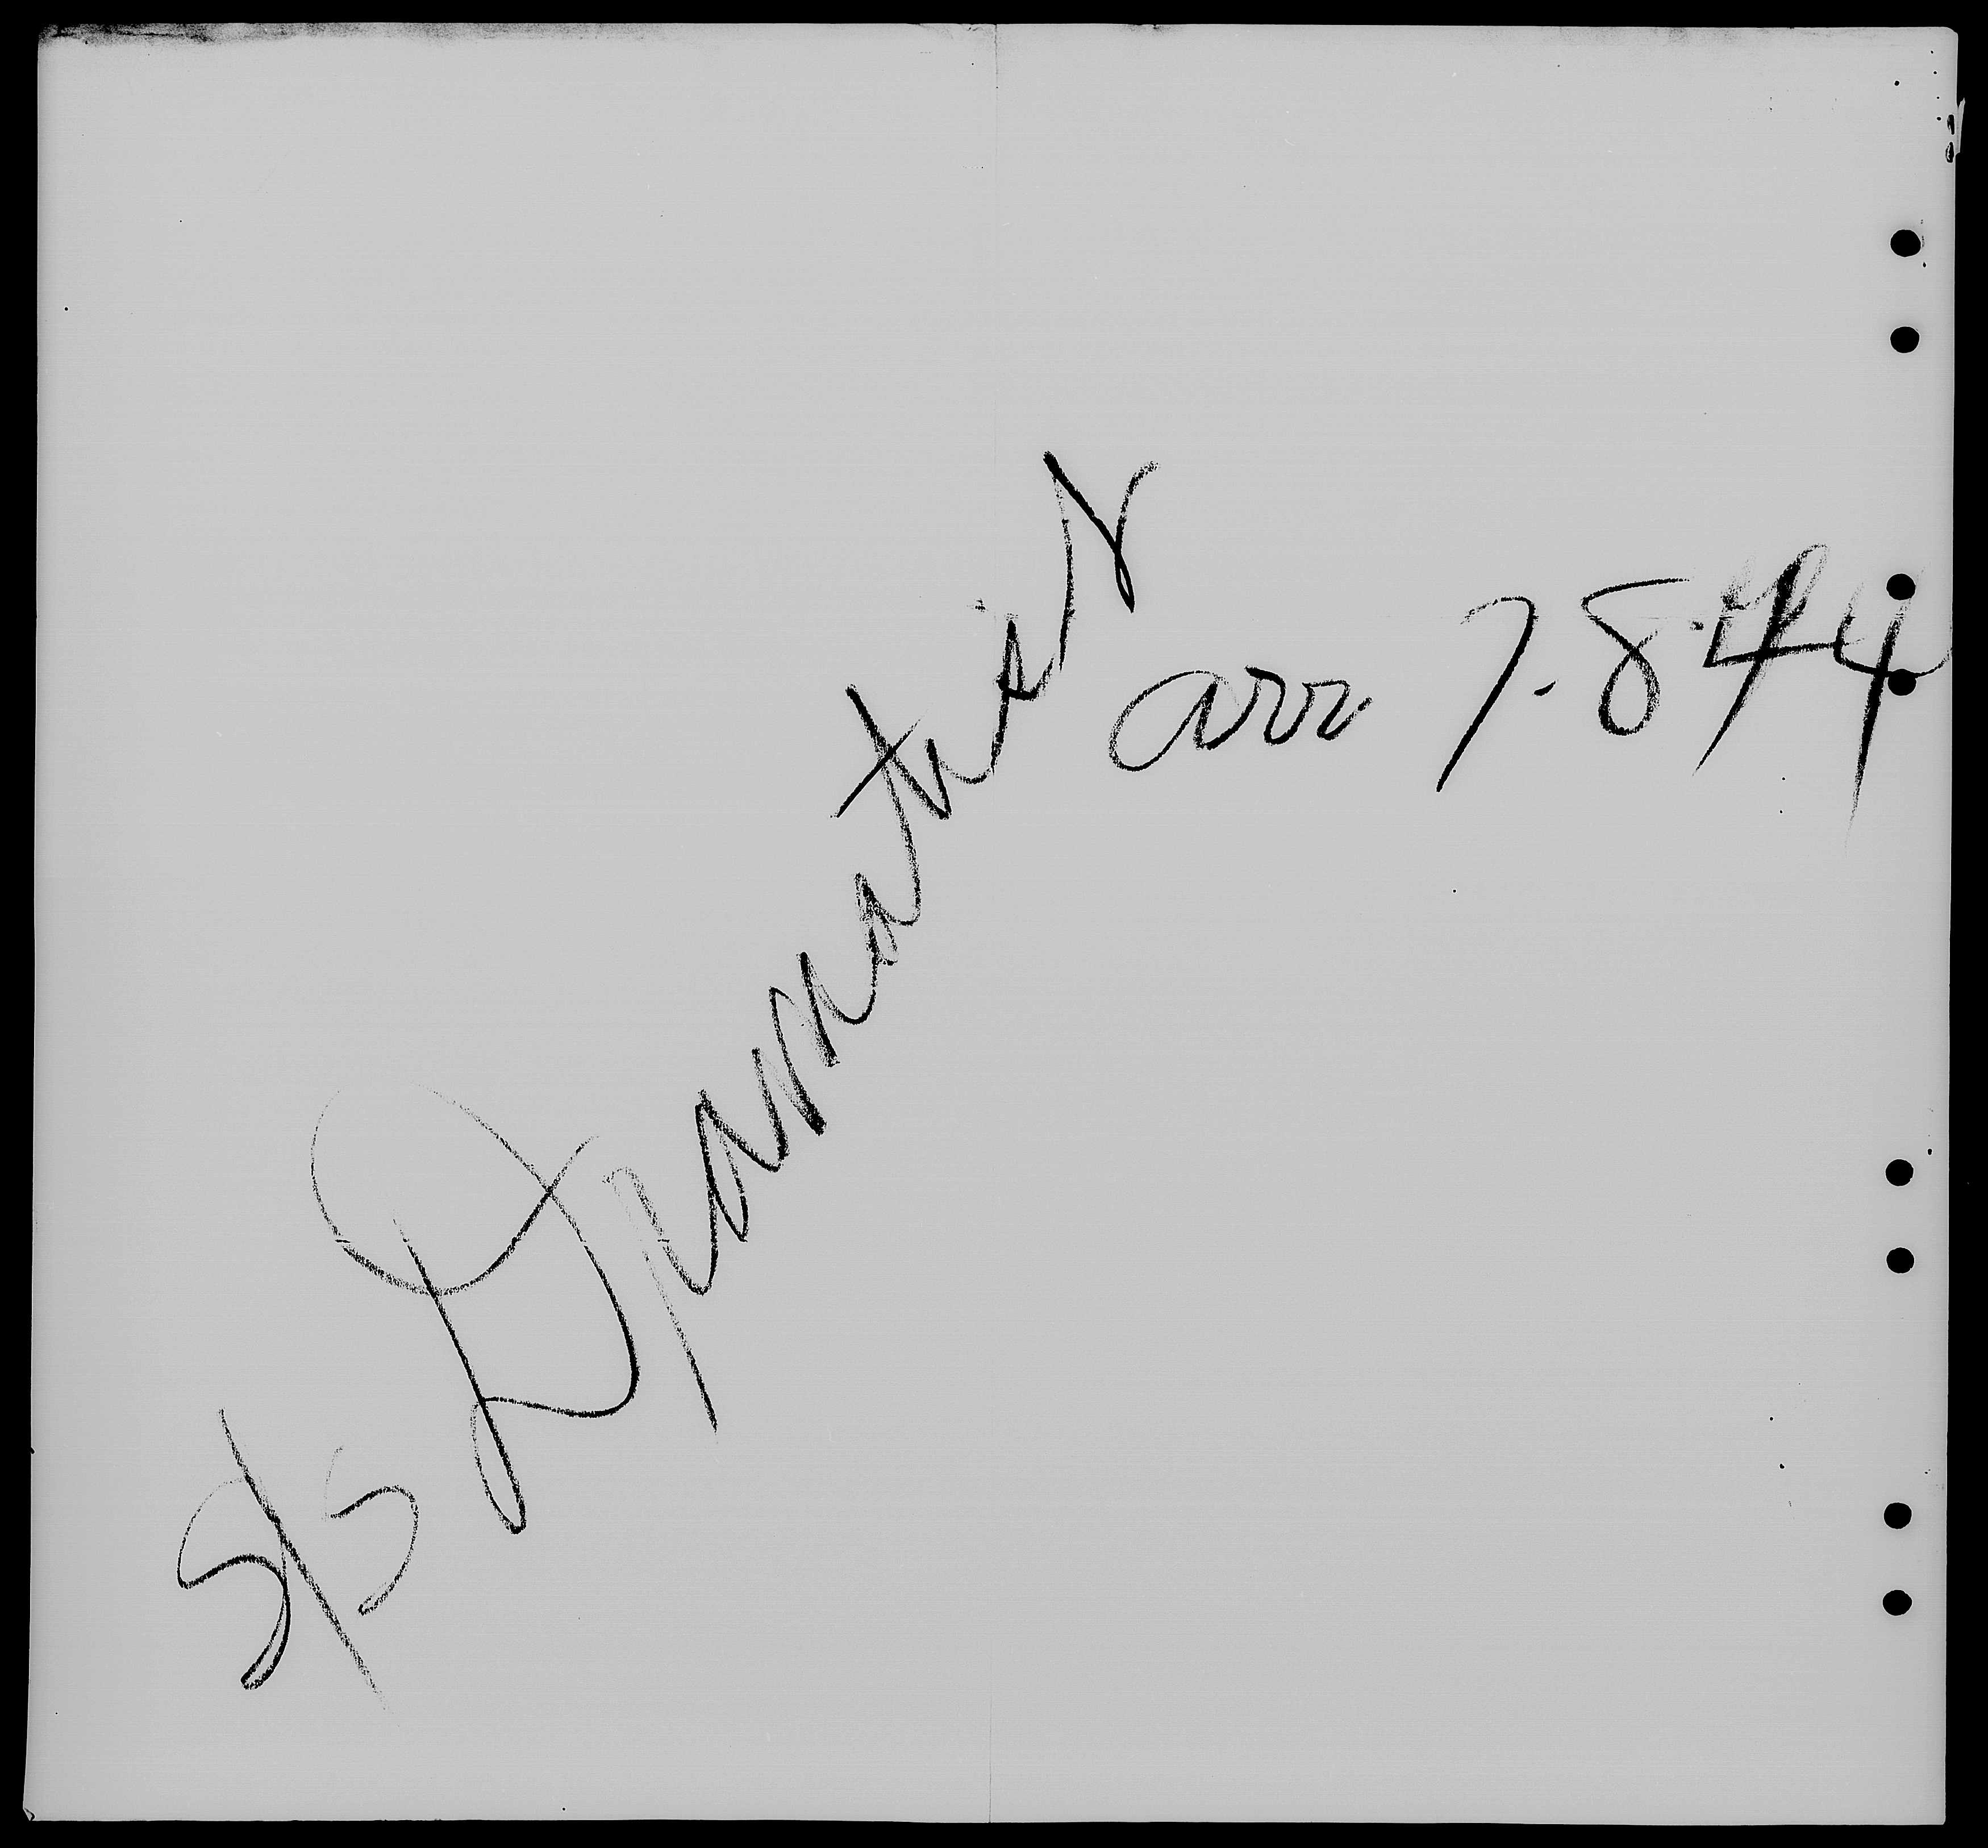 S/S Dramatist
arr 7.8.44